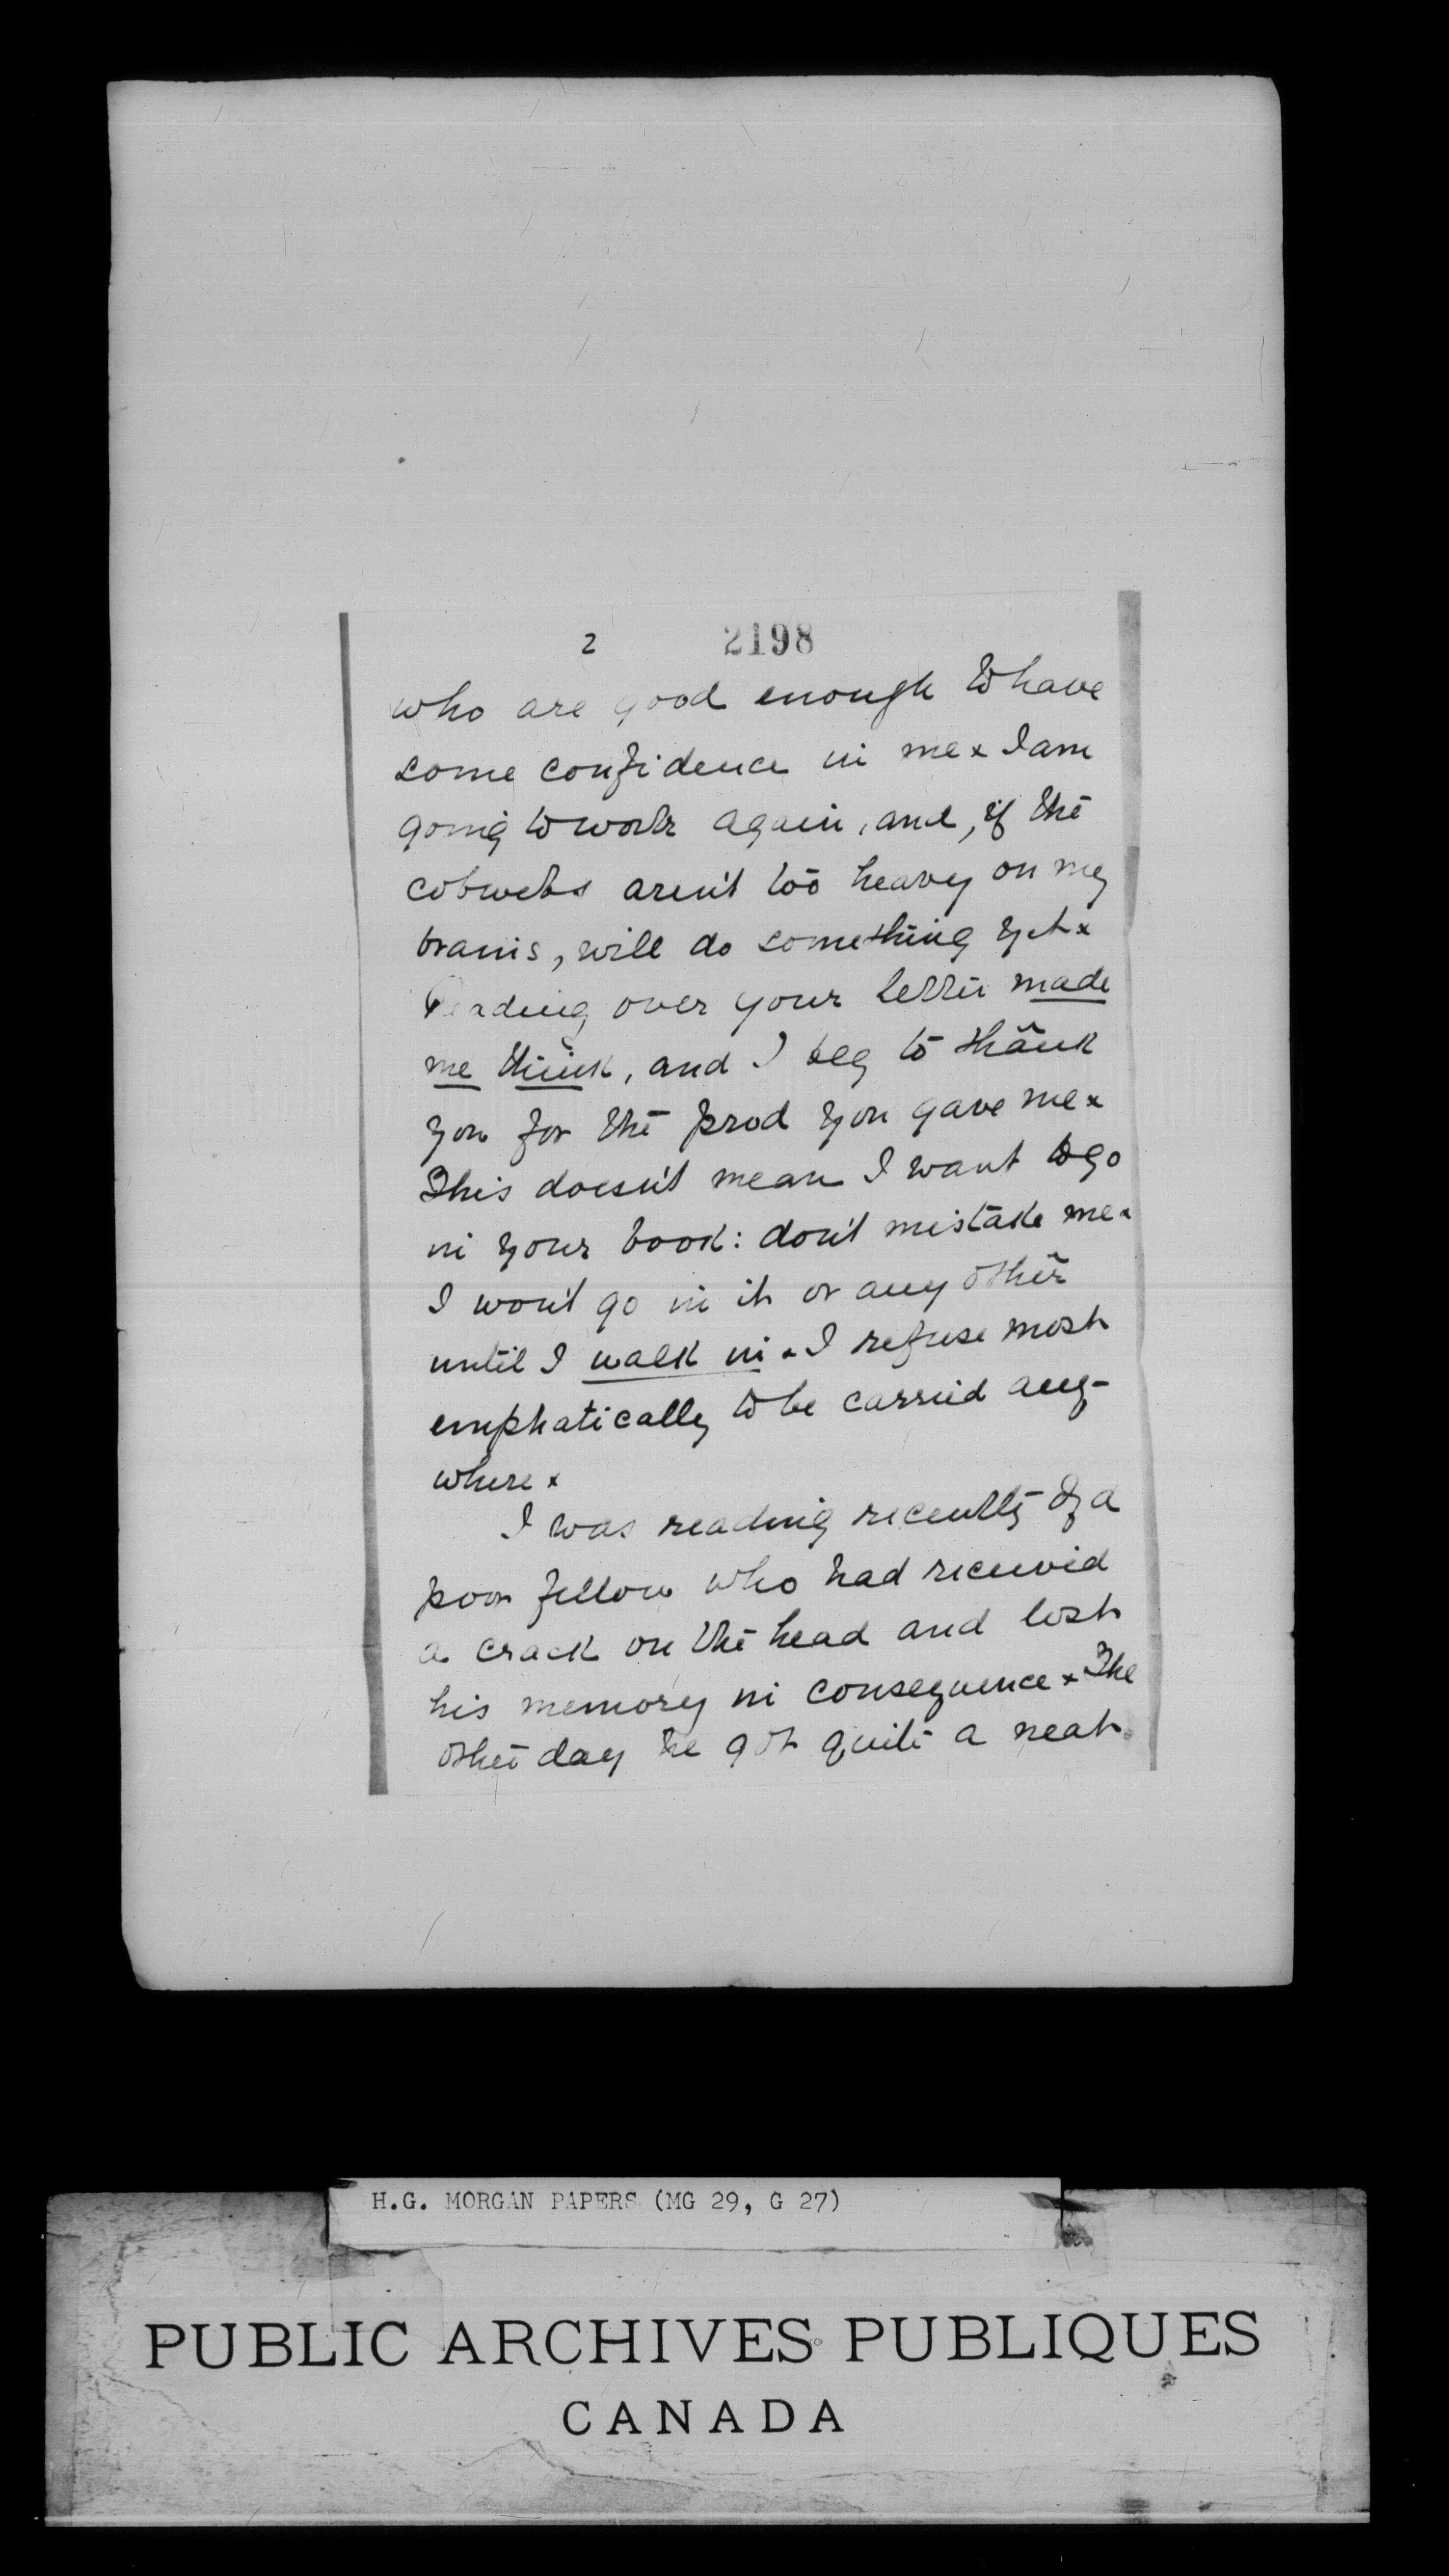 2 2198
who are good enough to have
some confidence in me x I am
going to work again, and, if the
cobwebs aren't too heavy on my
brains, will do something yet x
Reading over your letter made
me think, and I beg to thank
you for the prod you gave me x
This doesn't mean I want to go
in your book: don't mistake me x
I won't go in it or any other
until I walk in x I refuse most
emphatically to be carried any-
where x
I was reading recently of a
poor fellow who had received
a crack on the head and lost
his memory in consequence x The
other day he got quite a neat
H.G. MORGAN PAPERS (MG 29, G 27)
PUBLIC ARCHIVES PUBLIQUES
CANADA